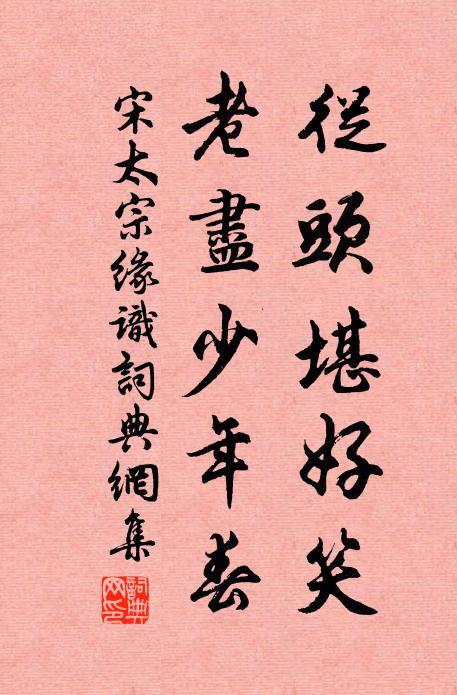 從頭堪好笑
老盡少年春
宋太宗緣識詞典網集
詞典网印